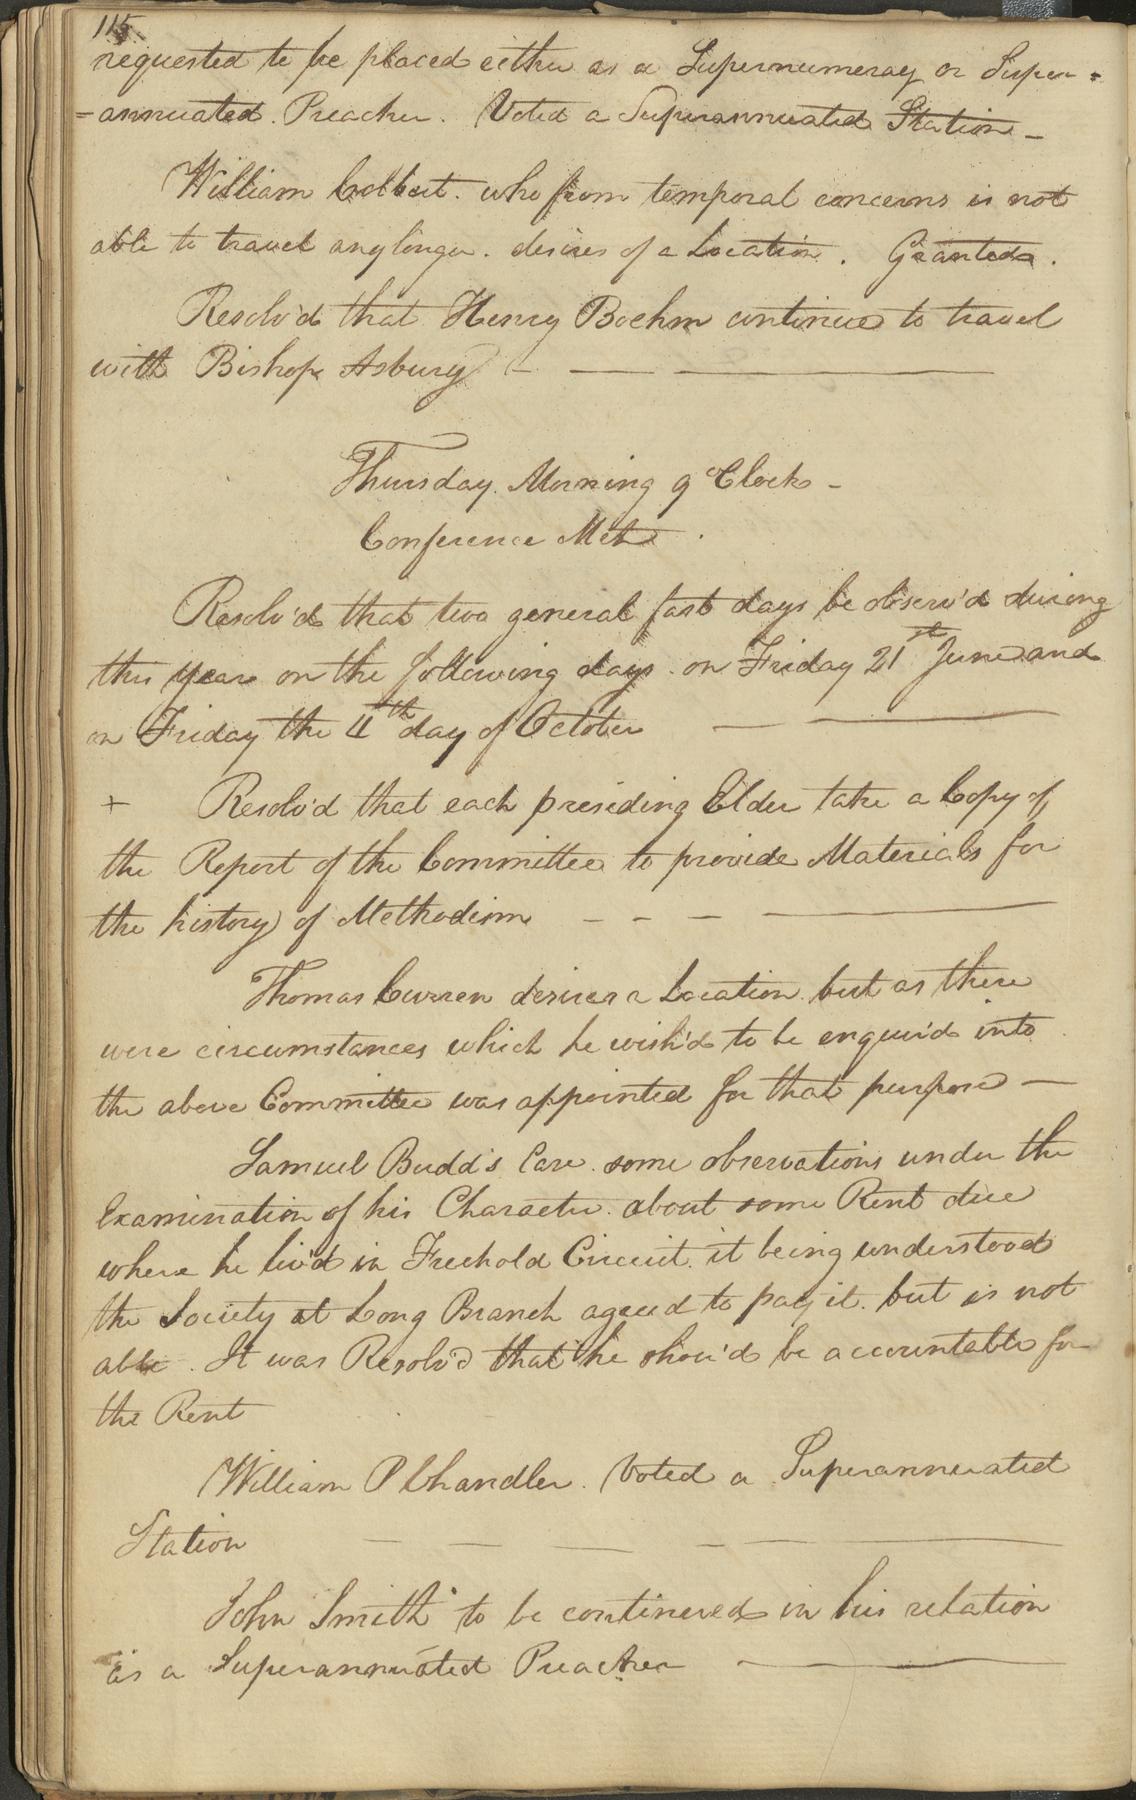 115
requested to be placed either as a Supernumeray or Super=
=annuated. Preacher. Voted a Superannuated Station -
William Colbert. who from temporal concerns is not
able to travel any longer. desires of a Location. Granted.
Resolv'd that Henry Boehm continue to travel
with Bishop Asbury
Thursday Morning 9 oClock -
Conference Met.
Resolv'd that two general fast days be observ'd during
this year on the following days. on Friday 21st June and
on Friday the 4th day of October
+ Resolv'd that each presiding Elder take a Copy of
the Report of the Committee to provide Materials for
the history of Methodism
Thomas Curren desires a Location. but as there
were circumstances which he wish'd to be enquir'd into
the above Committee was appointed for that purpose -
Samuel Budd's Case. some observations under the
Examination of his Character. about some Rent due
where he liv'd in Freehold Circuit. it being understood
the Society at Long Branch agreed to pay it. but is not
able. It was Resolv'd that he shou'd be accountable for
the Rent
William P Chandler. Voted a Superannuated
Station
John Smith to be continued in his relation
as a Superannuated Preacher